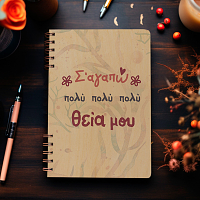 Σ'αγαπώ
πολύ πολύ πολύ
θεία μου